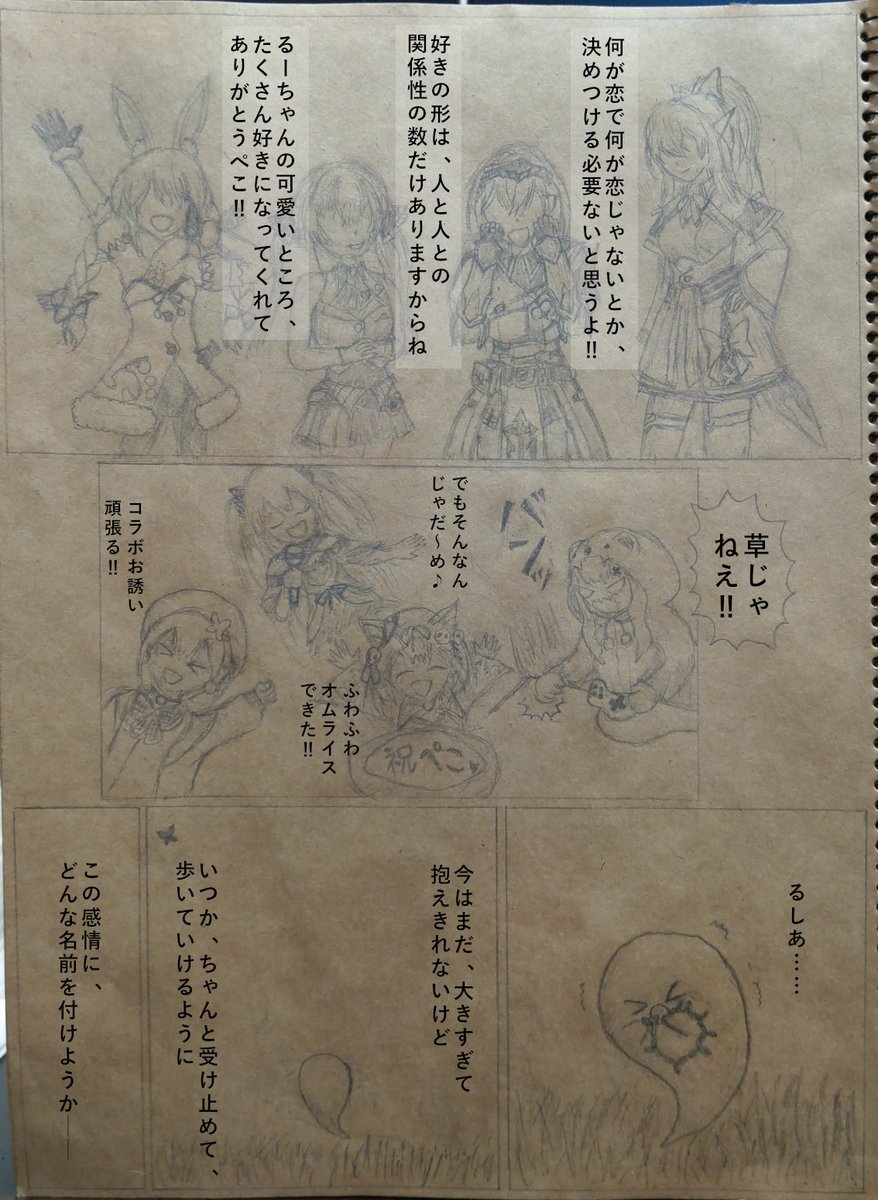 何が恋で何が恋じゃないとか、
決めつける必要ないと思うよ!!
好きの形は、人と人との
関係性の数だけありますからね
るーちゃんの可愛いところ、
たくさん好きになってくれて
ありがとうぺこ!!
草じゃ
ねえ!!
バンッ
でもそんなん
じゃだ～め♪
ふわふわ
オムライス
できた!!
祝ぺこ
コラボお誘い
頑張る!!
るしあ……
今はまだ、大きすぎて
抱えきれないけど
いつか、ちゃんと受け止めて、
歩いていけるように
この感情に、
どんな名前を付けようか――